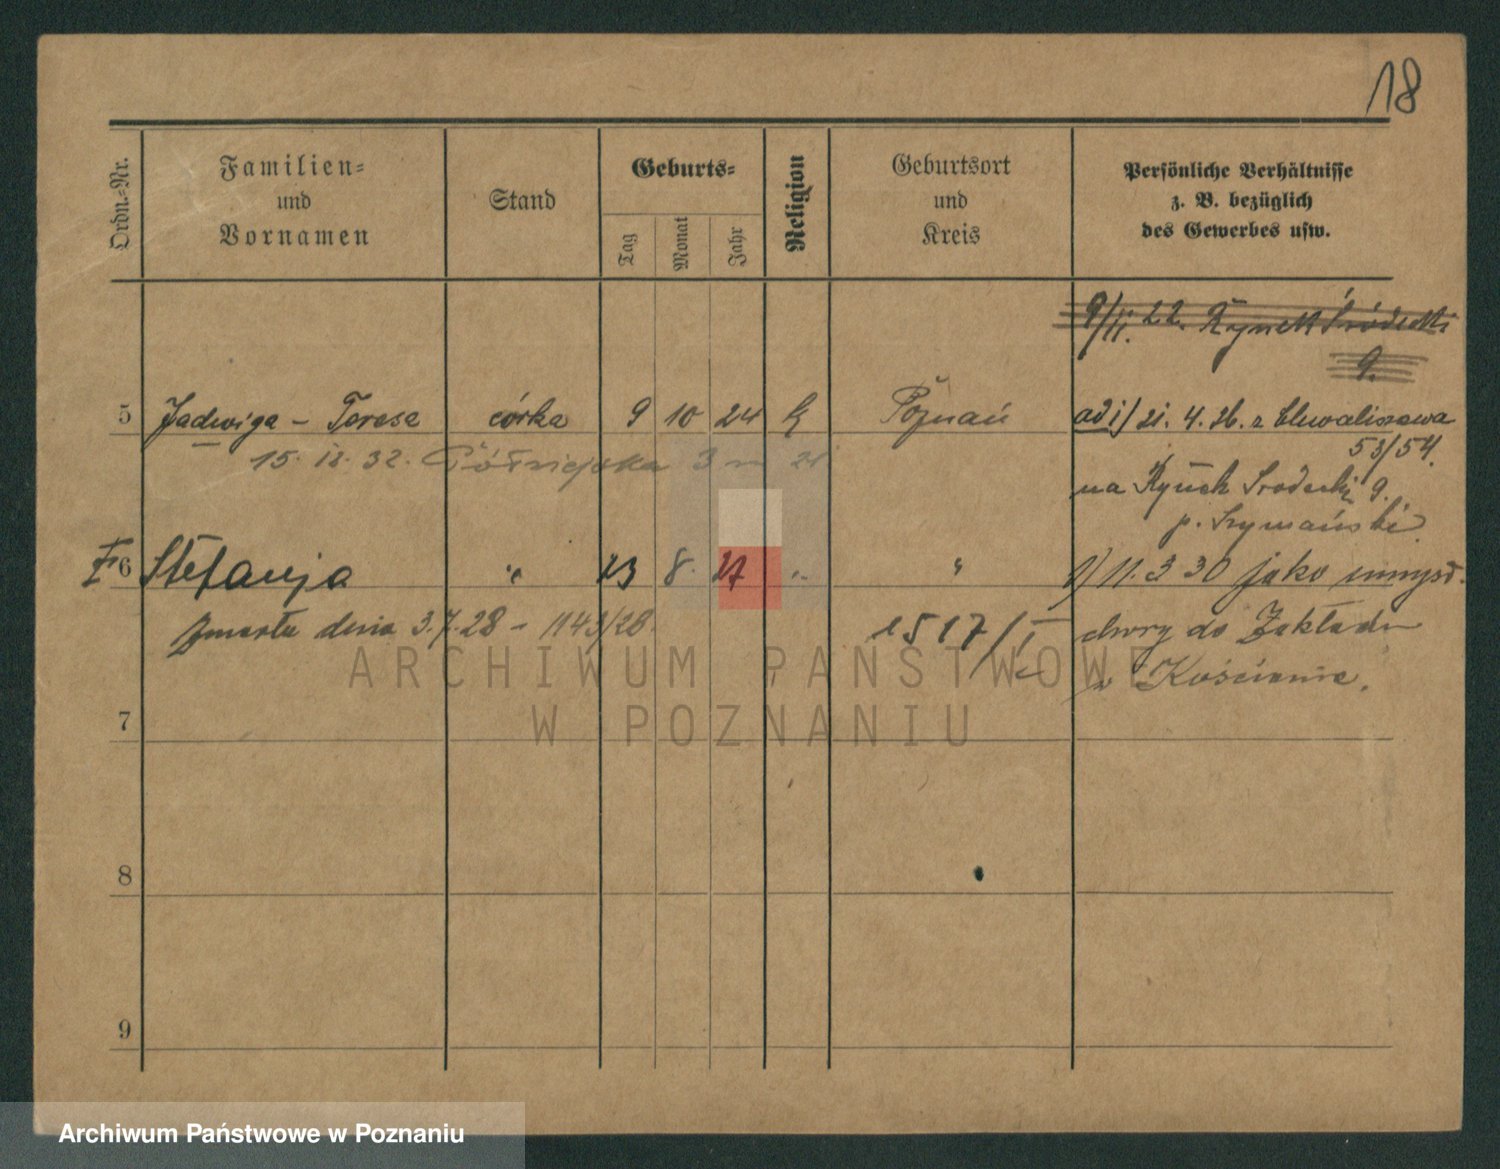 18
Ordn.-Nr.
Familien-
und
Vornamen
Stand
Geburts-
Tag
Monat
Jahr
Religion
Geburtsort
und
Kreis
Persönliche Verhältnisse
z. B. bezüglich
des Gewerbes usw.
9/II. 22. Rynek Śródecki
9.
5 Jadwiga - Teresa córka 9 10 24 k Poznań ad 1) 21. 4. 26. z Chwaliszewa
53/54.
15. 12. 32. 3 m 21
na Rynek Srodecki 9.
p. Szymański.
6 Stefanja " 23 8. 27 " " 1) 11. 3 30 jako umysł.
zmarła dnia 3.7.28 - 1143/28. 1517/I chory do Zakładu
w Kościanie.
ARCHIWUM PAŃSTWOWE
W POZNANIU
7
8
9
Archiwum Państwowe w Poznaniu